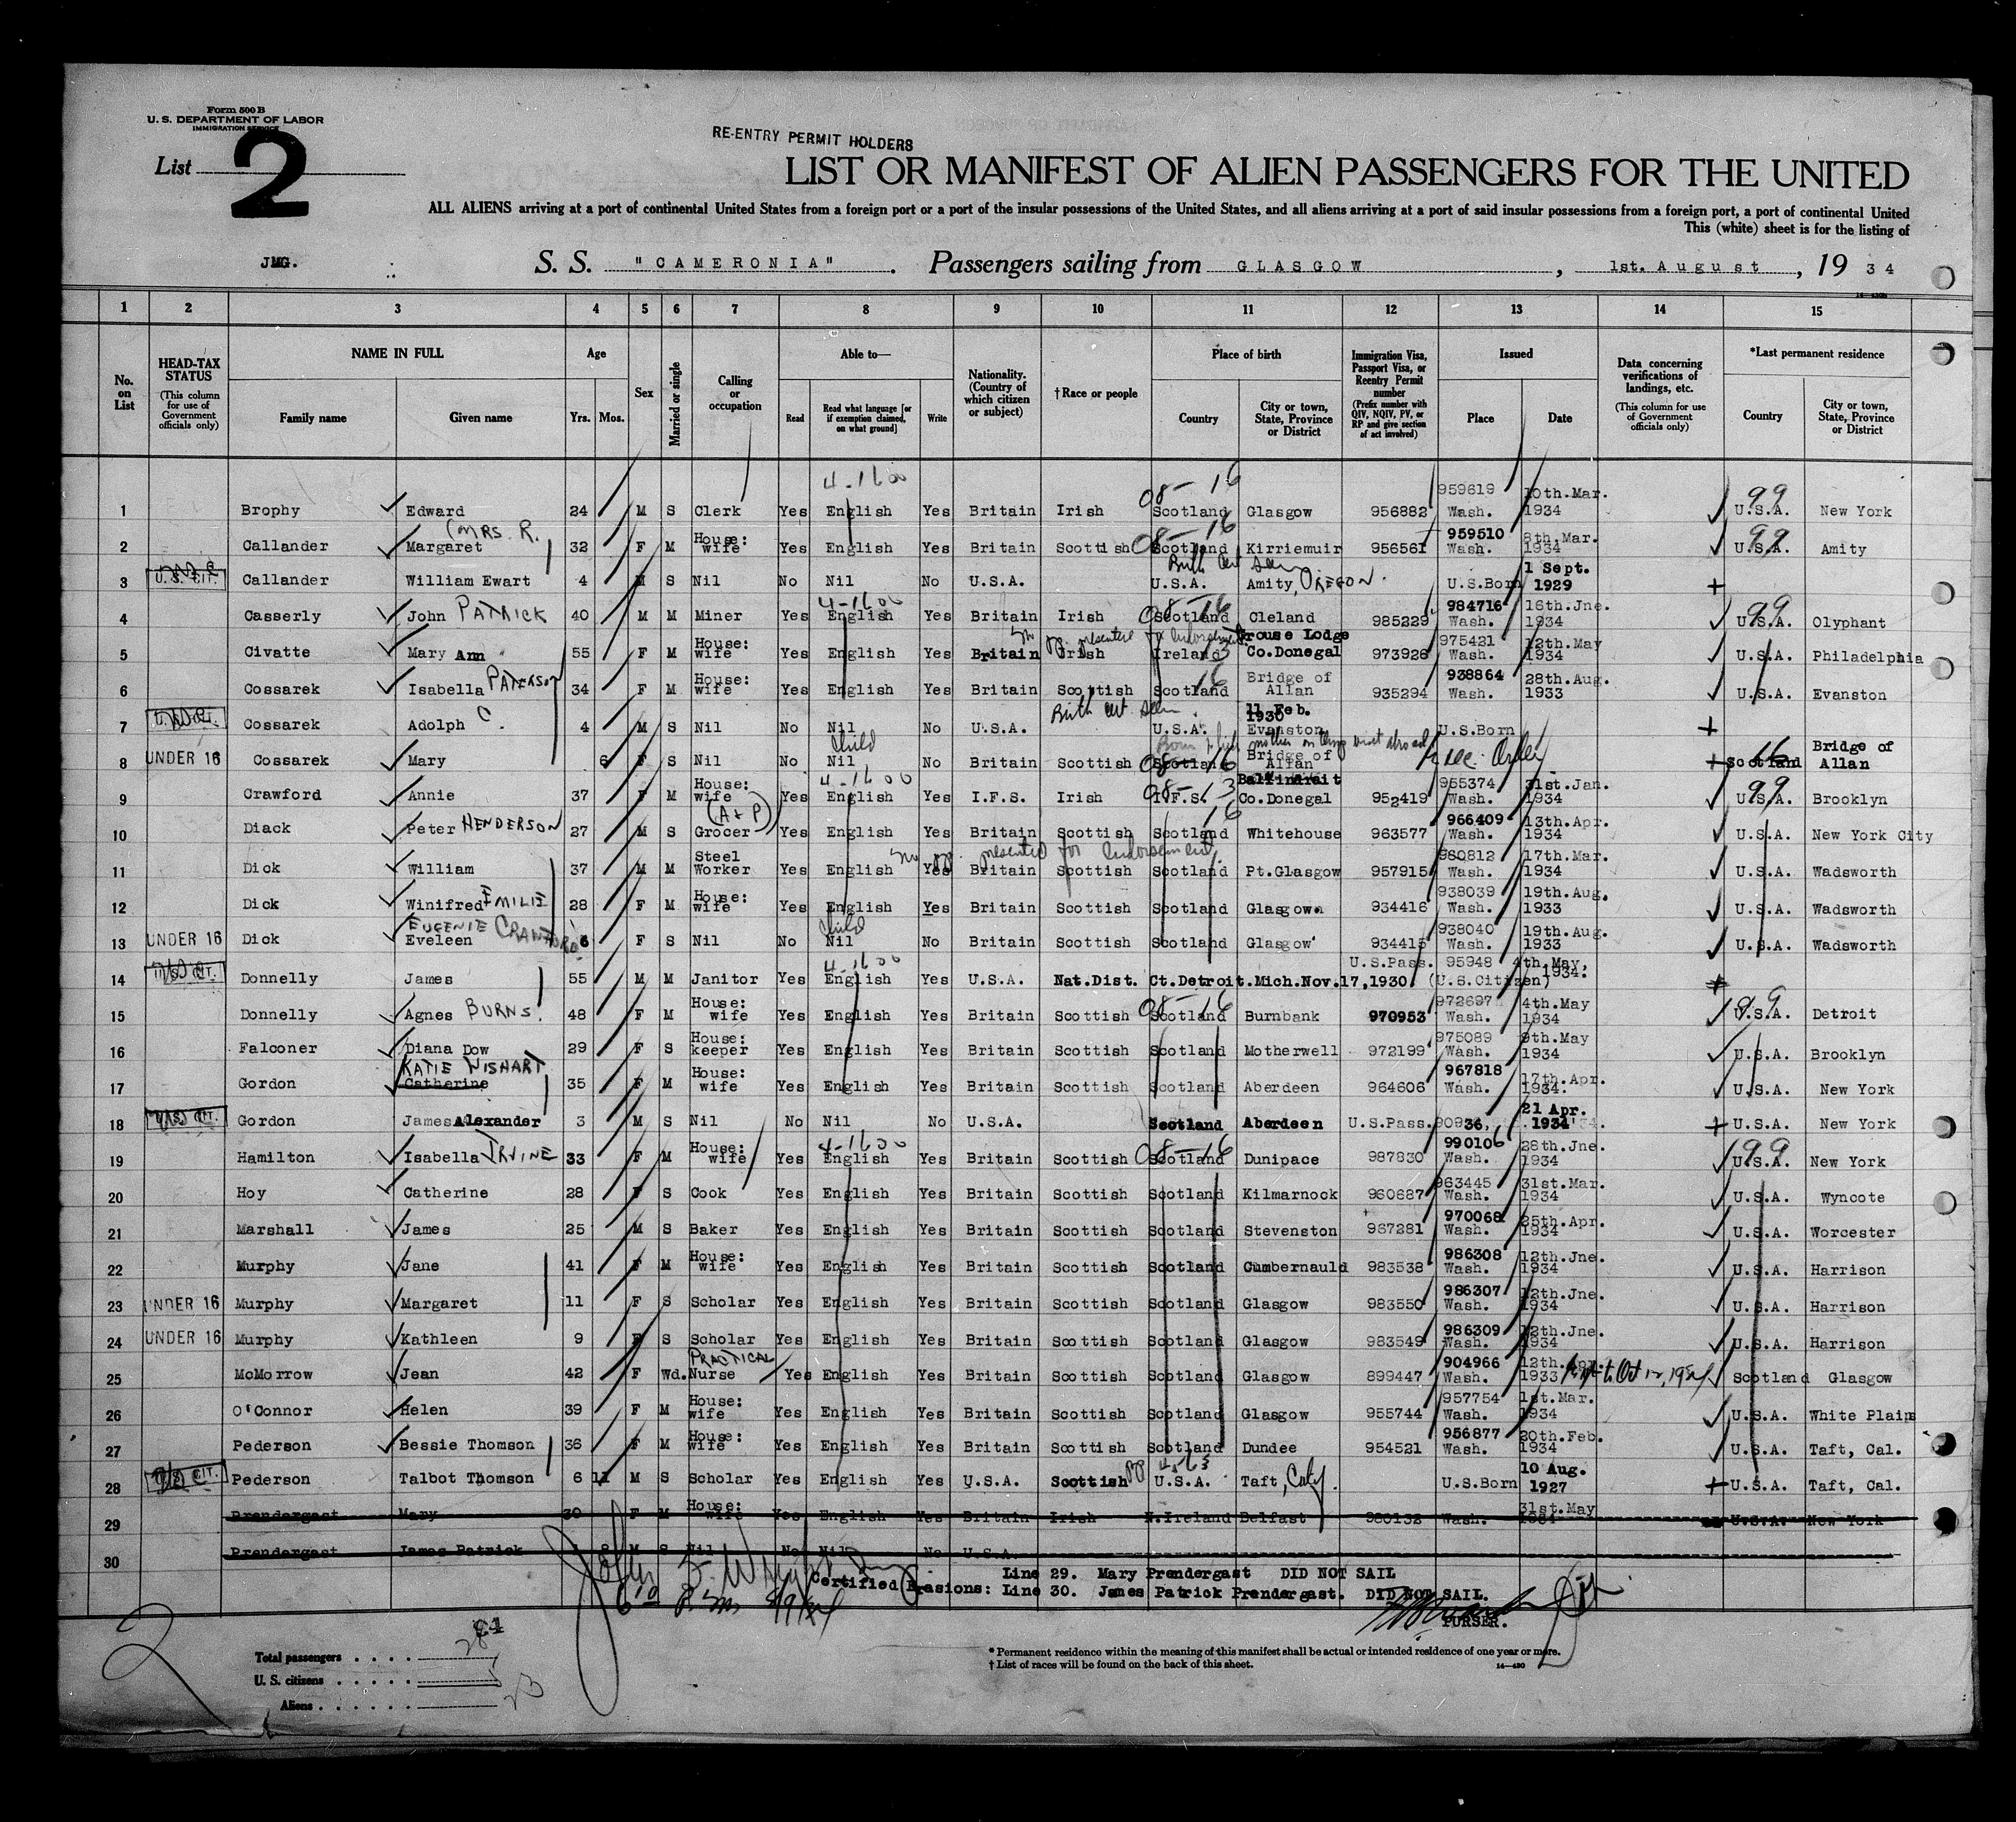 Form 500 B
U. S. DEPARTMENT OF LABOR
IMMIGRATION SERVICE
List 2
RE-ENTRY PERMIT HOLDERS
LIST OR MANIFEST OF ALIEN PASSENGERS FOR THE UNITED
ALL ALIENS arriving at a port of continental United States from a foreign port or a port of the insular possessions of the United States, and all aliens arriving at a port of said insular possessions from a foreign port, a port of continental United
This (white) sheet is for the listing of
JMG. S. S. "CAMERONIA". Passengers sailing from GLASGOW, 1st. August, 1934
1 2 3 4 5 6 7 8 9 10 11 12 13 14 15
No. on List
HEAD-TAX STATUS (This column for use of Government officials only)
NAME IN FULL Family name Given name
Age Yrs. Mos.
Sex
Married or single
Calling or occupation
Able to— Read Read what language [or if exemption claimed, on what ground] Write
Nationality. (Country of which citizen or subject)
†Race or people
Place of birth Country City or town, State, Province or District
Immigration Visa, Passport Visa, or Reentry Permit number (Prefix number with QIV, NQIV, PV, or RP and give section of act involved)
Issued Place Date
Data concerning verifications of landings, etc. (This column for use of Government officials only)
*Last permanent residence Country City or town, State, Province or District
1 Brophy Edward 24 M S Clerk Yes English Yes Britain Irish Scotland Glasgow 956882 959619 Wash. 10th.Mar. 1934 U.S.A. New York
2 Callander Margaret (MRS. R. 32 F M House: wife Yes English Yes Britain Scottish Scotland Kirriemuir 956561 959510 Wash. 8th.Mar. 1934 U.S.A. Amity
3 U.S. CIT. Callander William Ewart 4 M S Nil No Nil No U.S.A. Birth cert seen U.S.A. Amity, OREGON. U.S.Born 1 Sept. 1929
4 Casserly John PATRICK 40 M M Miner Yes English Yes Britain Irish Scotland Cleland 985229 984716 Wash. 16th.Jne. 1934 U.S.A. Olyphant
5 Civatte Mary Ann 55 F M House: wife Yes English Yes Britain Irish Ireland Trouse Lodge Co.Donegal 973928 975421 Wash. 12th.May 1934 U.S.A. Philadelphia
6 Cossarek Isabella PATERSON 34 F M House: wife Yes English Yes Britain Scottish Scotland Bridge of Allan 935294 938864 Wash. 28th.Aug. 1933 U.S.A. Evanston
7 Cossarek Adolph C. 4 M S Nil No Nil No U.S.A. Birth cert seen U.S.A. 11 Feb. 1930 Evanston U.S.Born
8 UNDER 16 Cossarek Mary 6 F S Nil No Nil child No Britain Scottish Scotland Bridge of Allan Scotland Bridge of Allan
9 Crawford Annie 37 F M House: wife Yes English Yes I.F.S. Irish I.F.S. Ballindrait Co.Donegal 952419 955374 Wash. 31st.Jan. 1934 U.S.A. Brooklyn
10 Diack Peter HENDERSON 27 M S Grocer (A & P) Yes English Yes Britain Scottish Scotland Whitehouse 963577 966409 Wash. 13th.Apr. 1934 U.S.A. New York City
presented for endorsement
11 Dick William 37 M M Steel Worker Yes English Yes Britain Scottish Scotland Pt.Glasgow 957915 960812 Wash. 17th.Mar. 1934 U.S.A. Wadsworth
12 Dick Winifred EMILIE 28 F M House: wife Yes English Yes Britain Scottish Scotland Glasgow. 934416 938039 Wash. 19th.Aug. 1933 U.S.A. Wadsworth
13 UNDER 16 Dick Eveleen EUGENIE CRAWFORD 6 F S Nil No Nil child No Britain Scottish Scotland Glasgow 934415 938040 Wash. 19th.Aug. 1933 U.S.A. Wadsworth
14 U.S. CIT. Donnelly James 55 M M Janitor Yes English Yes U.S.A. Nat.Dist. Ct.Detroit.Mich.Nov.17,1930 U.S.Pass. 95948 4th.May. 1934. (U.S.Citizen)
15 Donnelly Agnes BURNS. 48 F M House: wife Yes English Yes Britain Scottish Scotland Burnbank 970953 972697 Wash. 4th.May 1934 U.S.A. Detroit
16 Falconer Diana Dow 29 F S House: keeper Yes English Yes Britain Scottish Scotland Motherwell 972199 975089 Wash. 9th.May 1934 U.S.A. Brooklyn
17 Gordon Catherine KATIE WISHART 35 F M House: wife Yes English Yes Britain Scottish Scotland Aberdeen 964606 967818 Wash. 17th.Apr. 1934. U.S.A. New York
18 U.S. CIT. Gordon James Alexander 3 M S Nil No Nil No U.S.A. Scotland Aberdeen U.S.Pass. 90936, 21 Apr. 1934 U.S.A. New York
19 Hamilton Isabella IRVINE 33 F M House: wife Yes English Yes Britain Scottish Scotland Dunipace 987830 990106 Wash. 28th.Jne. 1934 U.S.A. New York
20 Hoy Catherine 28 F S Cook Yes English Yes Britain Scottish Scotland Kilmarnock 960687 963445 Wash. 31st.Mar. 1934 U.S.A. Wyncote
21 Marshall James 25 M S Baker Yes English Yes Britain Scottish Scotland Stevenston 967281 970068 Wash. 25th.Apr. 1934 U.S.A. Worcester
22 Murphy Jane 41 F M House: wife Yes English Yes Britain Scottish Scotland Cumbernauld 983538 986308 Wash. 12th.Jne. 1934 U.S.A. Harrison
23 UNDER 16 Murphy Margaret 11 F S Scholar Yes English Yes Britain Scottish Scotland Glasgow 983550 986307 Wash. 12th.Jne. 1934 U.S.A. Harrison
24 UNDER 16 Murphy Kathleen 9 F S Scholar Yes English Yes Britain Scottish Scotland Glasgow 983549 986309 Wash. 12th.Jne. 1934 U.S.A. Harrison
25 McMorrow Jean 42 F Wd. PRACTICAL Nurse Yes English Yes Britain Scottish Scotland Glasgow 899447 904966 Wash. 12th.Apr. 1933 Scotland Glasgow
26 O'Connor Helen 39 F M House: wife Yes English Yes Britain Scottish Scotland Glasgow 955744 957754 Wash. 1st.Mar. 1934 U.S.A. White Plains
27 Pederson Bessie Thomson 36 F M House: wife Yes English Yes Britain Scottish Scotland Dundee 954521 956877 Wash. 20th.Feb. 1934 U.S.A. Taft, Cal.
28 U.S. CIT. Pederson Talbot Thomson 6 11 M S Scholar Yes English Yes U.S.A. Scottish U.S.A. Taft, Calif. U.S.Born 10 Aug. 1927 U.S.A. Taft, Cal.
29 Prendergast Mary 30 F M House: wife Yes English Yes Britain Irish N.Ireland Belfast 980132 Wash. 31st.May 1934 U.S.A. New York
30 Prendergast James Patrick 8 M S Nil No Nil No U.S.A.
Certified Erasions: Line 29. Mary Prendergast DID NOT SAIL
Line 30. James Patrick Prendergast. DID NOT SAIL.
PURSER.
Total passengers 28
U. S. citizens 5
Aliens 23
* Permanent residence within the meaning of this manifest shall be actual or intended residence of one year or more.
† List of races will be found on the back of this sheet.
14—430
2